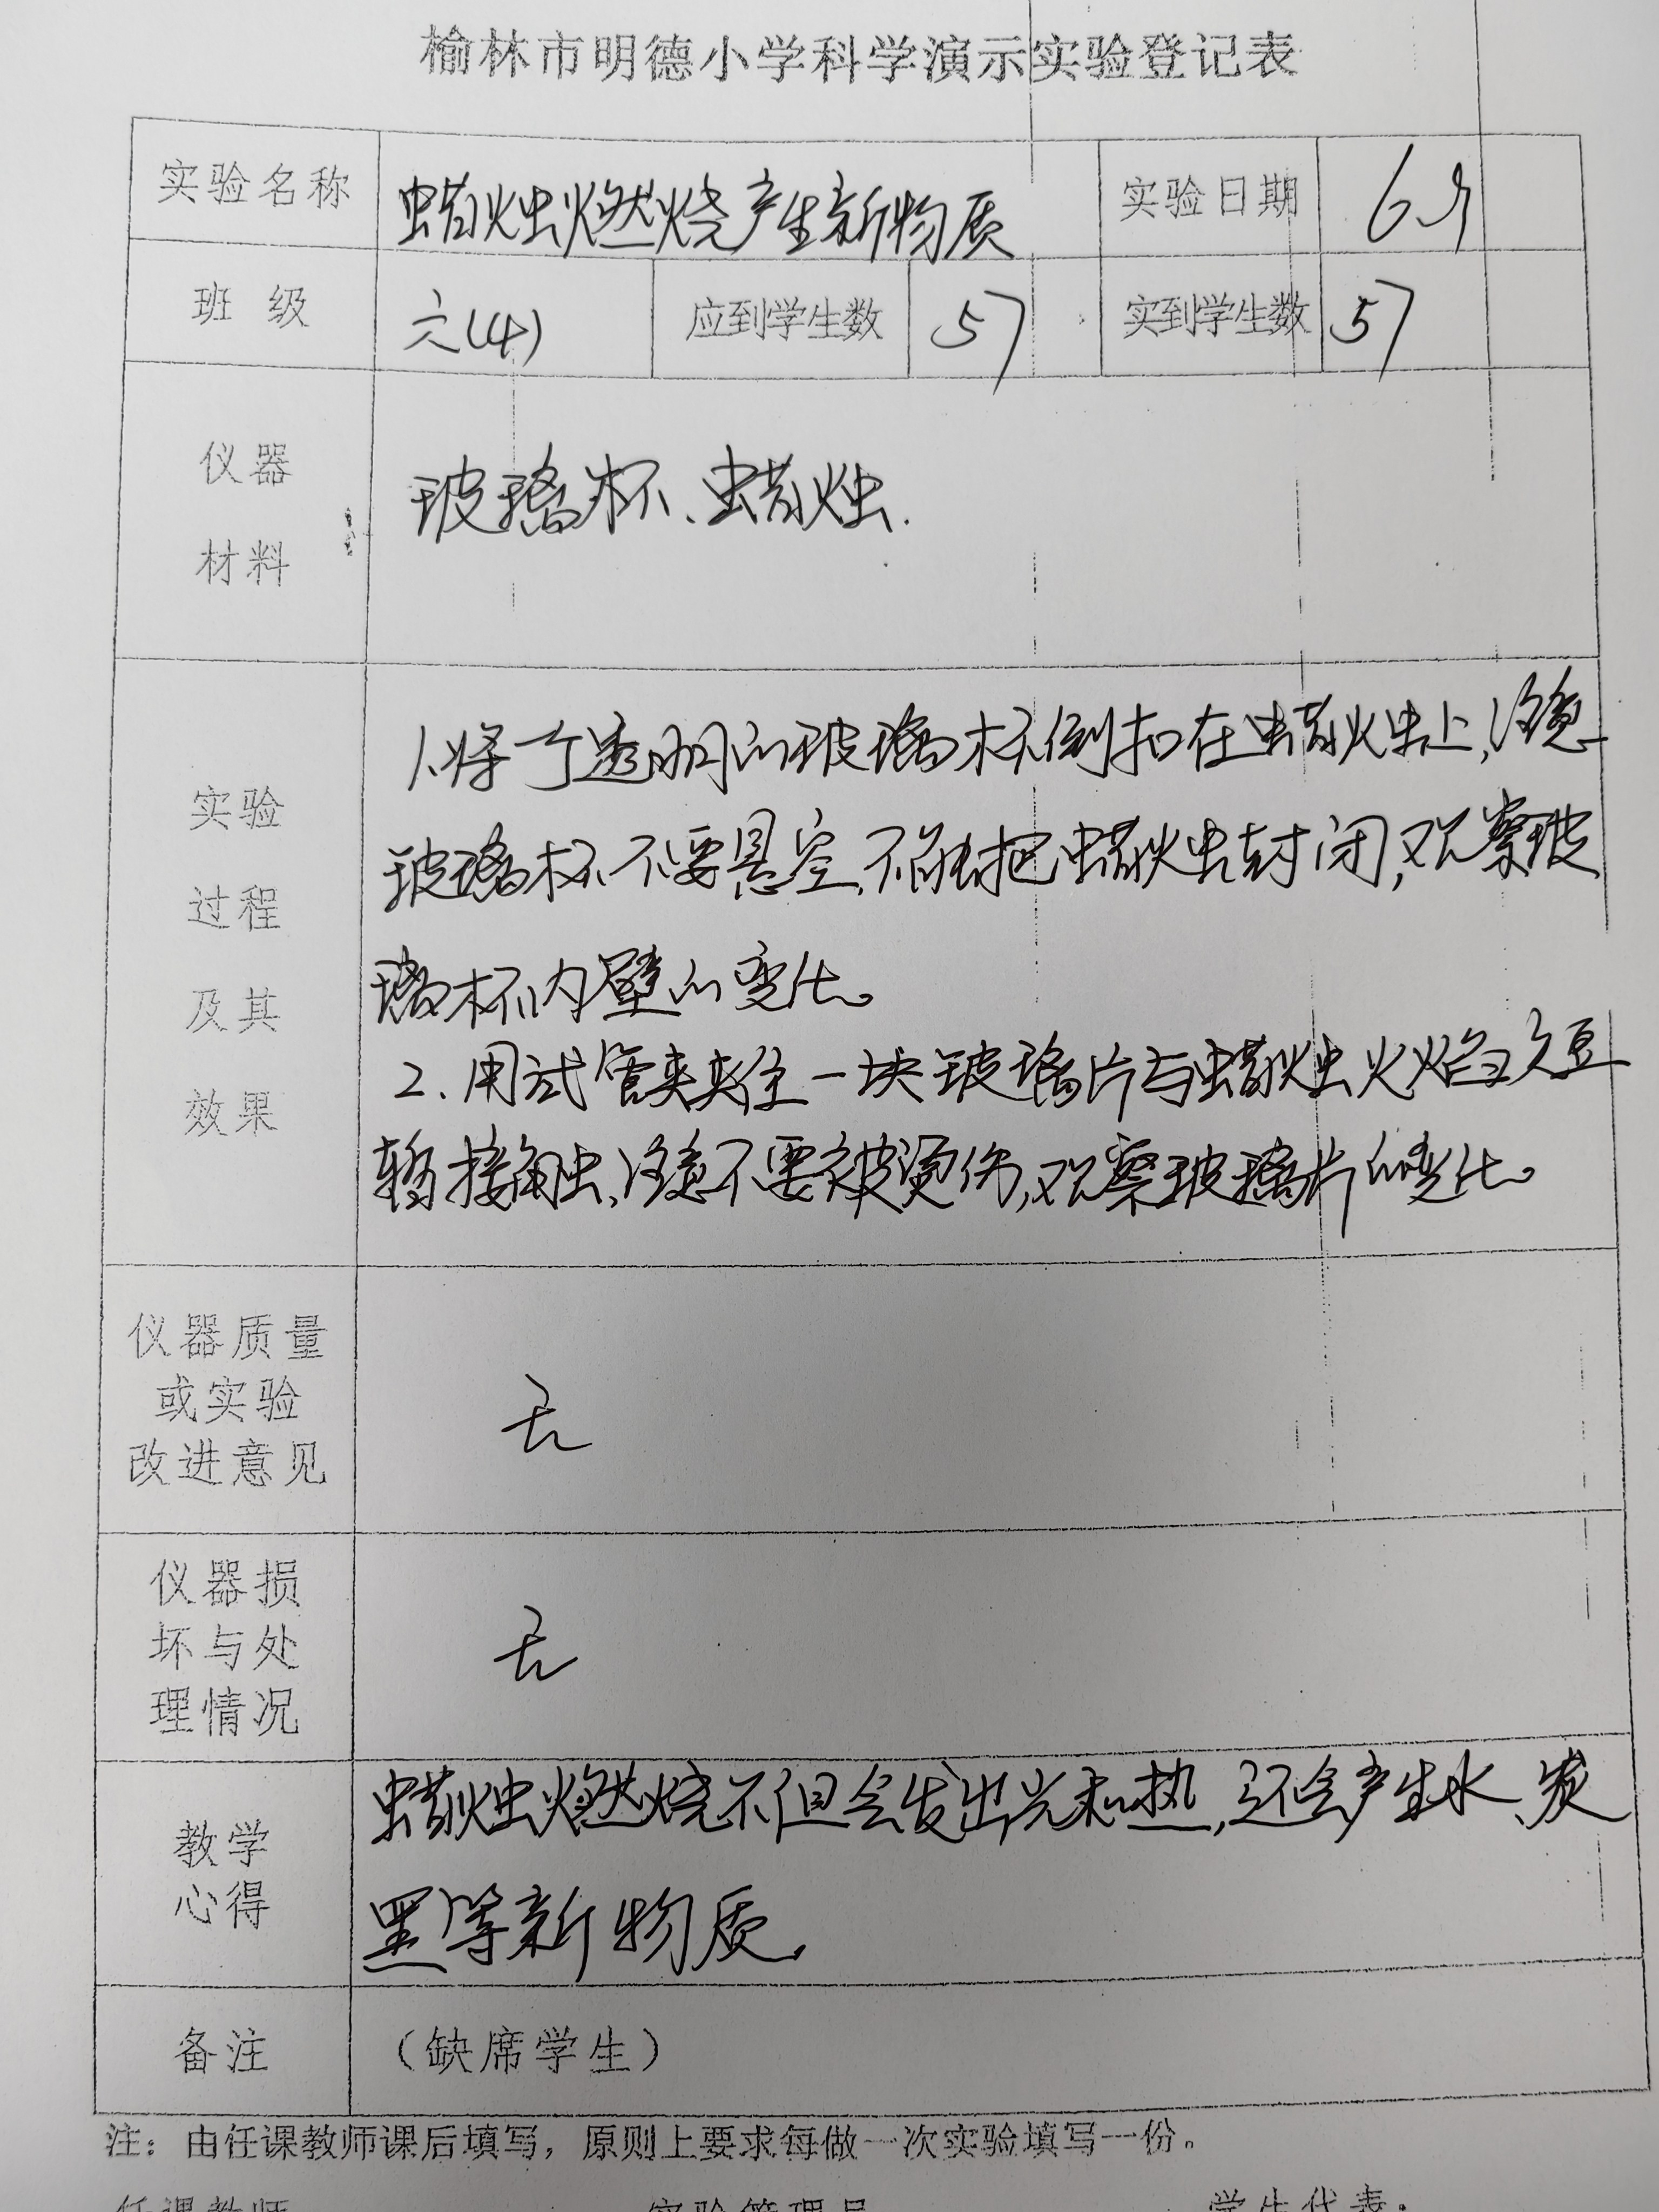 榆林市明德小学科学演示实验登记表
实验名称 蜡烛燃烧产生新物质 实验日期
班 级 六(4) 应到学生数 57 实到学生数 57
仪器
材料
玻璃杯、蜡烛.
实验
过程
及其
效果
1.将一个透明的玻璃杯倒扣在蜡烛上,注意
玻璃杯不要悬空,不能把蜡烛封闭,观察玻
璃杯内壁的变化。
2.用试管夹夹住一块玻璃片与蜡烛火焰短
暂接触,注意不要被烫伤,观察玻璃片的变化。
仪器质量
或实验
改进意见
无
仪器损
坏与处
理情况
无
教学
心得
蜡烛燃烧不但会发出光和热,还会产生水、炭
黑等新物质.
备注 (缺席学生)
注：由任课教师课后填写，原则上要求每做一次实验填写一份。
任课教师 实验管理员 学生代表：